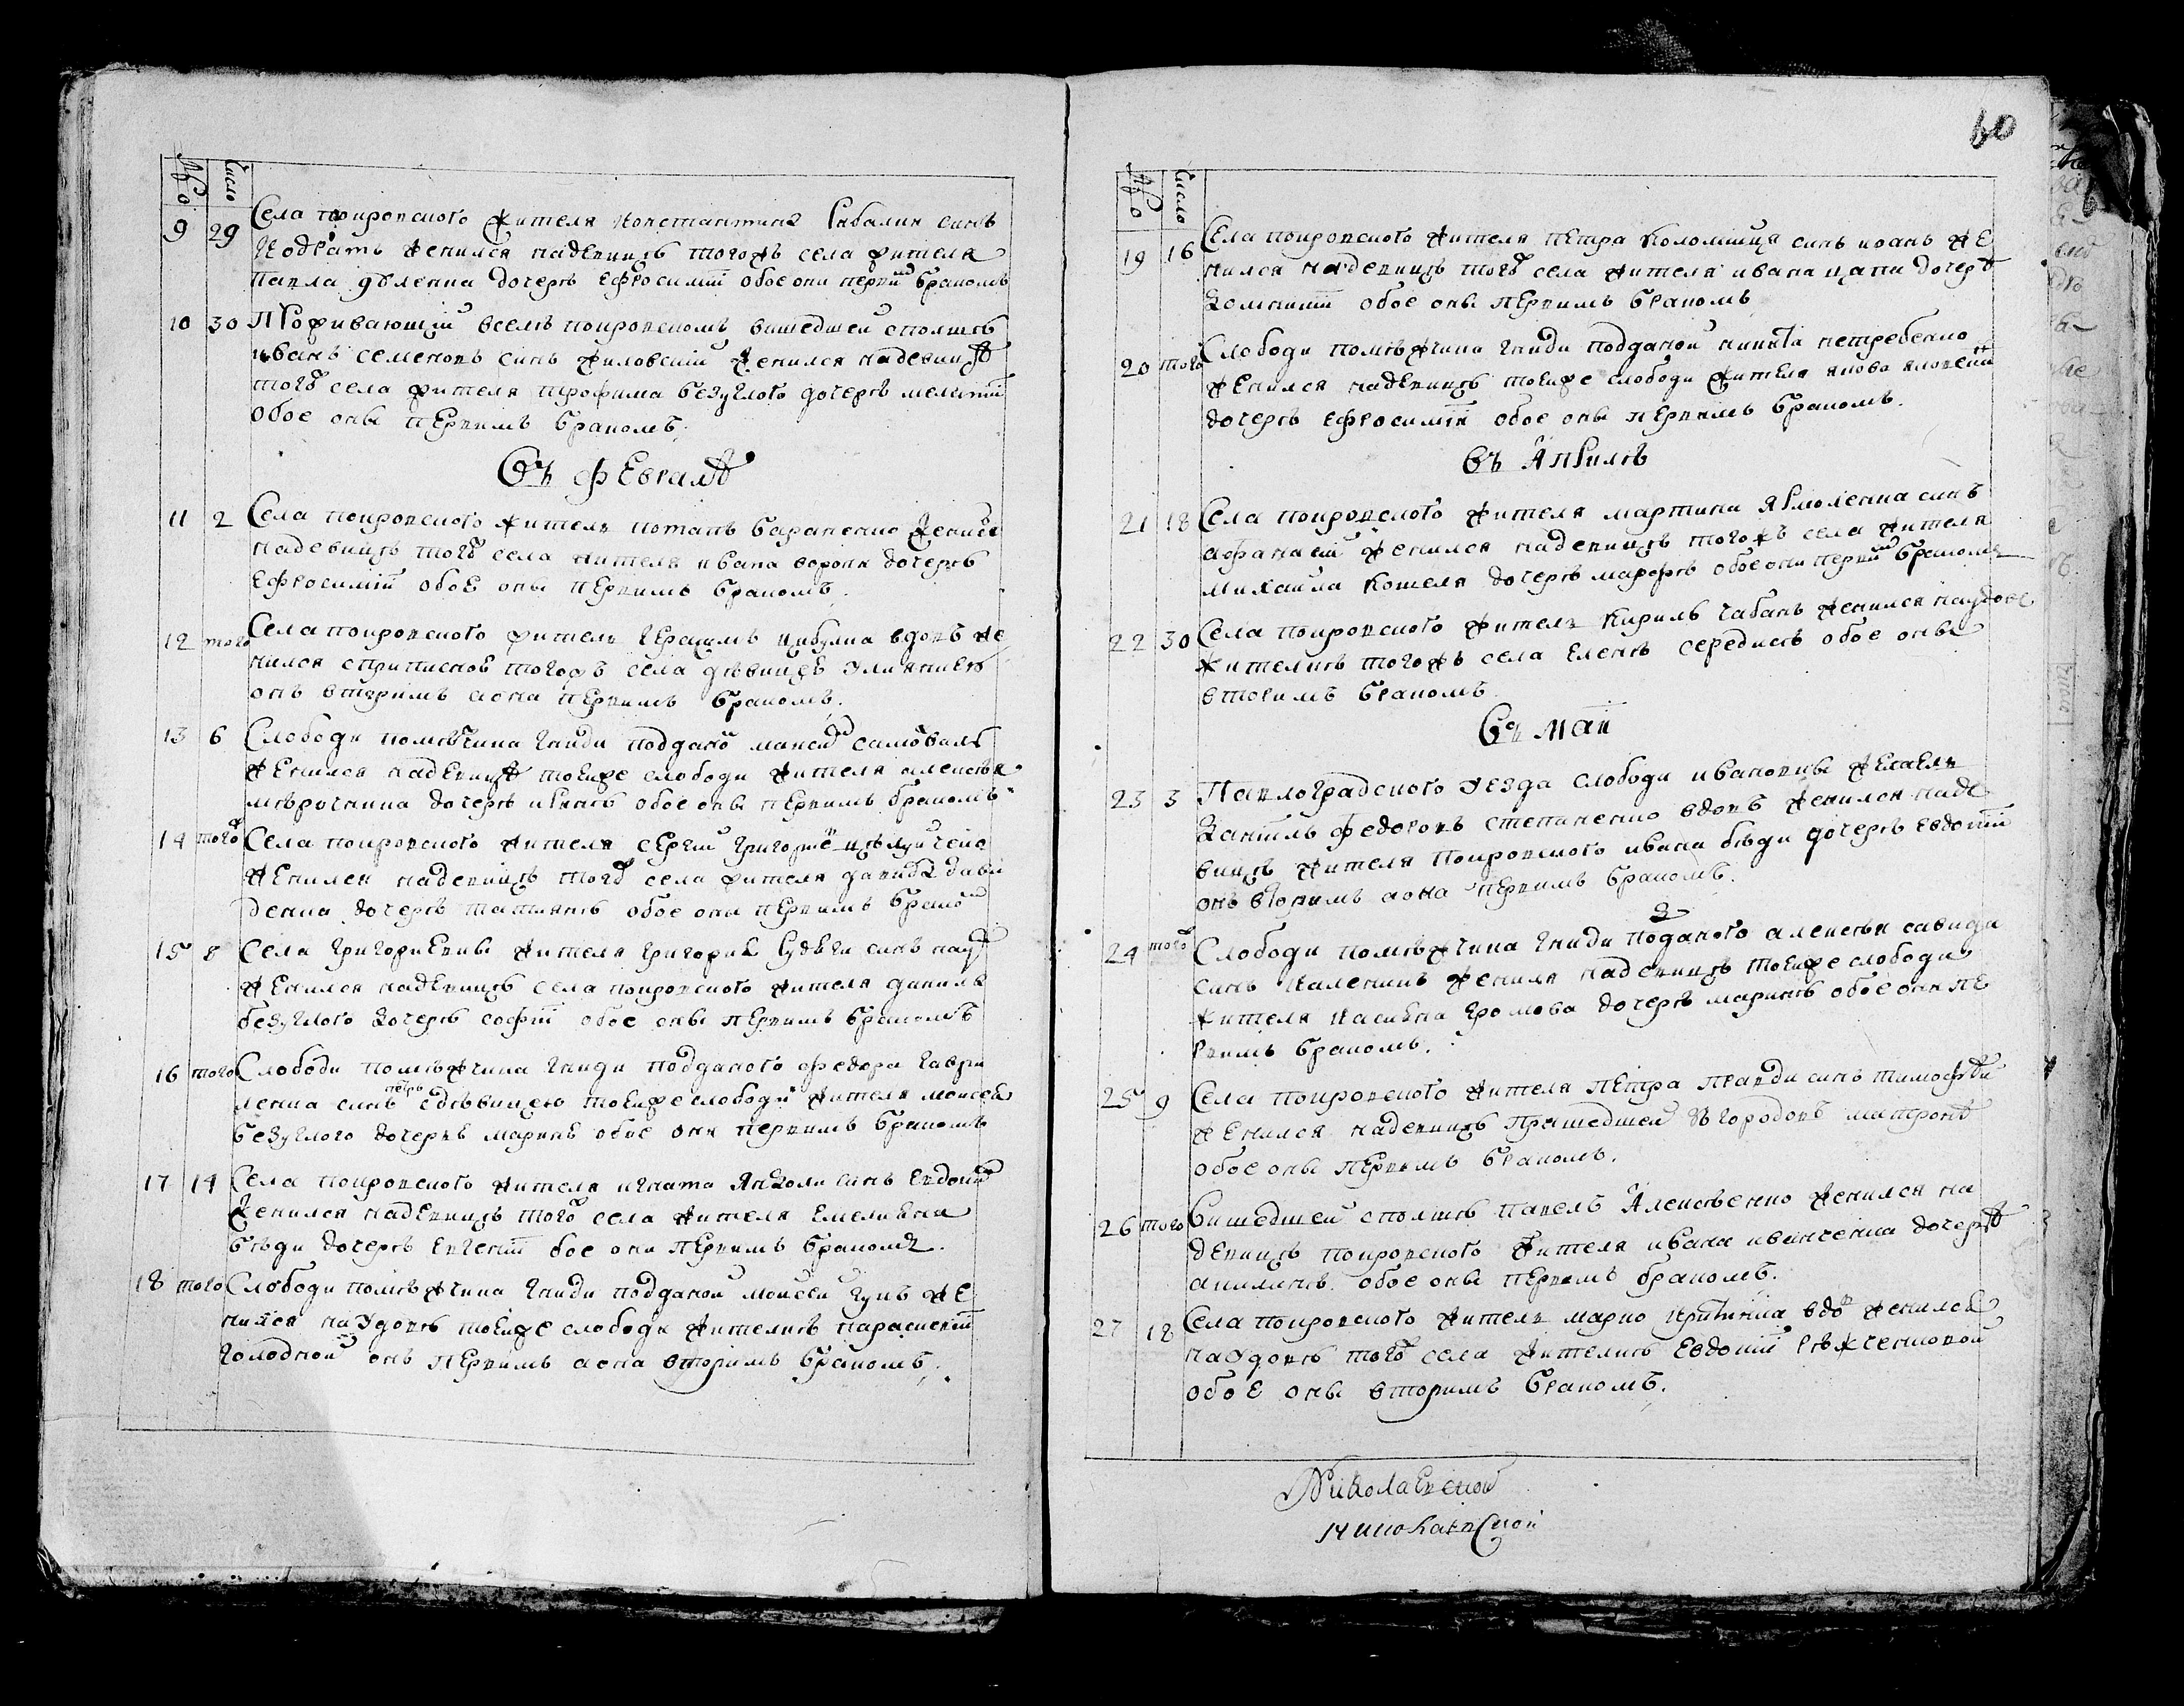 60
№ Число
9 29 Села покровского жителя константина Рибалки синъ
Кодратъ женился надевицѣ тогожъ села жителя
Павла дѣленка дочерѣ ефросиміи обое они первимъ бракомъ
10 30 Проживающій вселѣ покровскомъ вишедшей сполшѣ
иванъ семеновъ синъ жиловскій женился надевицѣ
тогожъ села жителя трофима безуглого дочерѣ мелании
обое оны первимъ бракомъ.
Въ Февралѣ
11 2 Села покровского житель потапъ бараненко женился
надевицѣ тогожъ села жителя ивана ворони дочерѣ
ефросиміи обое оны первимъ бракомъ.
12 того Села покровского житель герасимъ цибулка вдовъ же
нился тогожъ села дѣвицею улияниею
онъ вторимъ аона первимъ бракомъ.
13 6 Слободи помѣжчика гниди подданой
женился надевицѣ тоеиже слободи жителя алексѣя
дочерѣ иринѣ обое оны первимъ бракомъ
14 того Села покровского жителя сергій григоріевъ
женился надевицѣ тогожъ села жителя давида дави
денка дочерѣ татиянѣ обое они первимъ бракомъ
15 8 Села григориевки жителя григория синъ
женился надевицѣ села покровского жителя данила
безуглого дочерѣ софіи обое оны первимъ бракомъ
16 того Слободи помѣжчика гниди подданого федора гаври
ленка синъ петро сдѣвицею тоеиже слободи жителя моисея
безуглого дочерѣ маринѣ обое они первимъ бракомъ
17 14 Села покровского жителя игната синъ евдокимъ
женился надевицѣ тогожъ села жителя емелияна
бѣди дочерѣ евгеніи обое они первимъ бракомъ.
18 того Слободи помѣжчика гниди подданой моисей гунъ же
нился наудовѣ тоеиже слободи жителкѣ параскевіи
голодной онъ первимъ аона вторимъ бракомъ.
№ Число
19 16 Села покровского жителя петра коломійця синъ иоанъ же
нился надевицѣ тогожъ села жителя ивана цапи дочерѣ
домникии обое оны первимъ бракомъ
20 того Слободи помѣжчика гниди подданой никита нетребенко
женился надевицѣ тоеиже слободи жителя якова
дочерѣ ефросиміи обое оны первимъ бракомъ.
Въ Априлѣ
21 18 Села покровского жителя мартина Ярмоленка синъ
афанасій женился надевицѣ тогожъ села жителя
михаила кошеля дочерѣ марофѣ обое они первимъ бракомъ
22 30 Села покровского житель кирилъ чабанъ женился наудове
жителкѣ тогожъ села еленѣ середискѣ обое оны
вторимъ бракомъ
Въ Маи
23 3 Павлоградского уезда слободи ивановки житель
данилъ федоровъ степаненко вдовъ женился наде
вицѣ жителя покровского ивана бѣди дочерѣ евдокіи
онъ вторимъ аона первимъ бракомъ.
24 того Слободи помѣжчика гниди поданого алексѣя савиди
синъ каленикъ женился надевицѣ тоеиже слободи
жителя касияна громова дочерѣ маринѣ обое они пе
рвимъ бракомъ.
25 9 Села покровского жителя петра правди синъ тимофѣй
женился надевицѣ пришедшей матронѣ
обое оны первимъ бракомъ.
26 того Вишедшей сполшѣ павелъ Алексѣенко женился на
девицѣ покровского жителя ивана иванченка дочерѣ
акилинѣ обое оны первимъ бракомъ.
27 18 Села покровского житель марко вдовъ женился
наудовѣ тогожъ села жителкѣ евдокіи
обое оны вторимъ бракомъ.
Николаевской